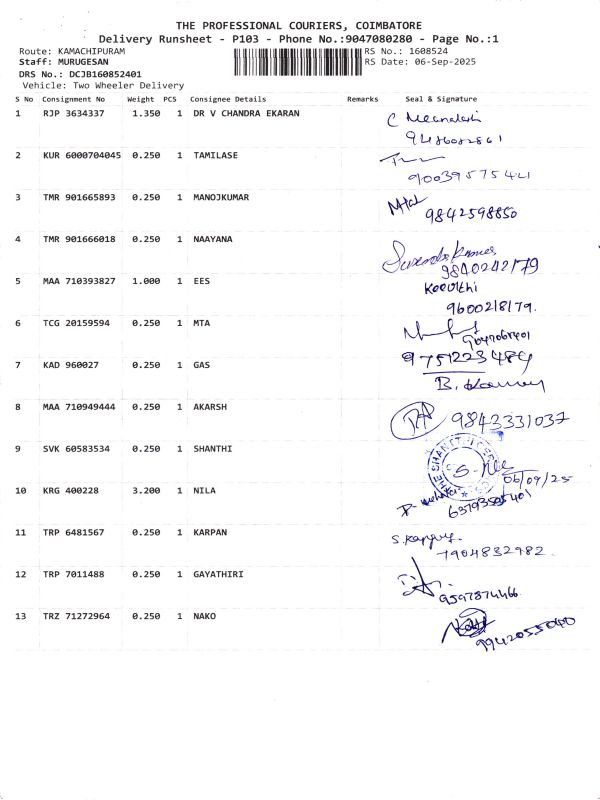 THE PROFESSIONAL COURIERS, COIMBATORE
Delivery Runsheet - P103 - Phone No.:9047080280 - Page No.:1
Route: KAMACHIPURAM RS No.: 1608524
Staff: MURUGESAN RS Date: 06-Sep-2025
DRS No.: DCJB160852401
Vehicle: Two Wheeler Delivery
S No Consignment No Weight PCS Consignee Details Remarks Seal & Signature
1 RJP 3634337 1.350 1 DR V CHANDRA EKARAN
C Meenakshi
9486082861
2 KUR 6000704045 0.250 1 TAMILASE
9003957544
3 TMR 901665893 0.250 1 MANOJKUMAR
9842598850
4 TMR 901666018 0.250 1 NAAYANA
9840242179
5 MAA 710393827 1.000 1 EES
Keerthi
9600218179.
6 TCG 20159594 0.250 1 MTA
7 KAD 960027 0.250 1 GAS
9751223484
B.
8 MAA 710949444 0.250 1 AKARSH
9843331037
9 SVK 60583534 0.250 1 SHANTHI
06/09/25
10 KRG 400228 3.200 1 NILA
11 TRP 6481567 0.250 1 KARPAN
7904832982.
12 TRP 7011488 0.250 1 GAYATHIRI
9597874466
13 TRZ 71272964 0.250 1 NAKO
9942055040